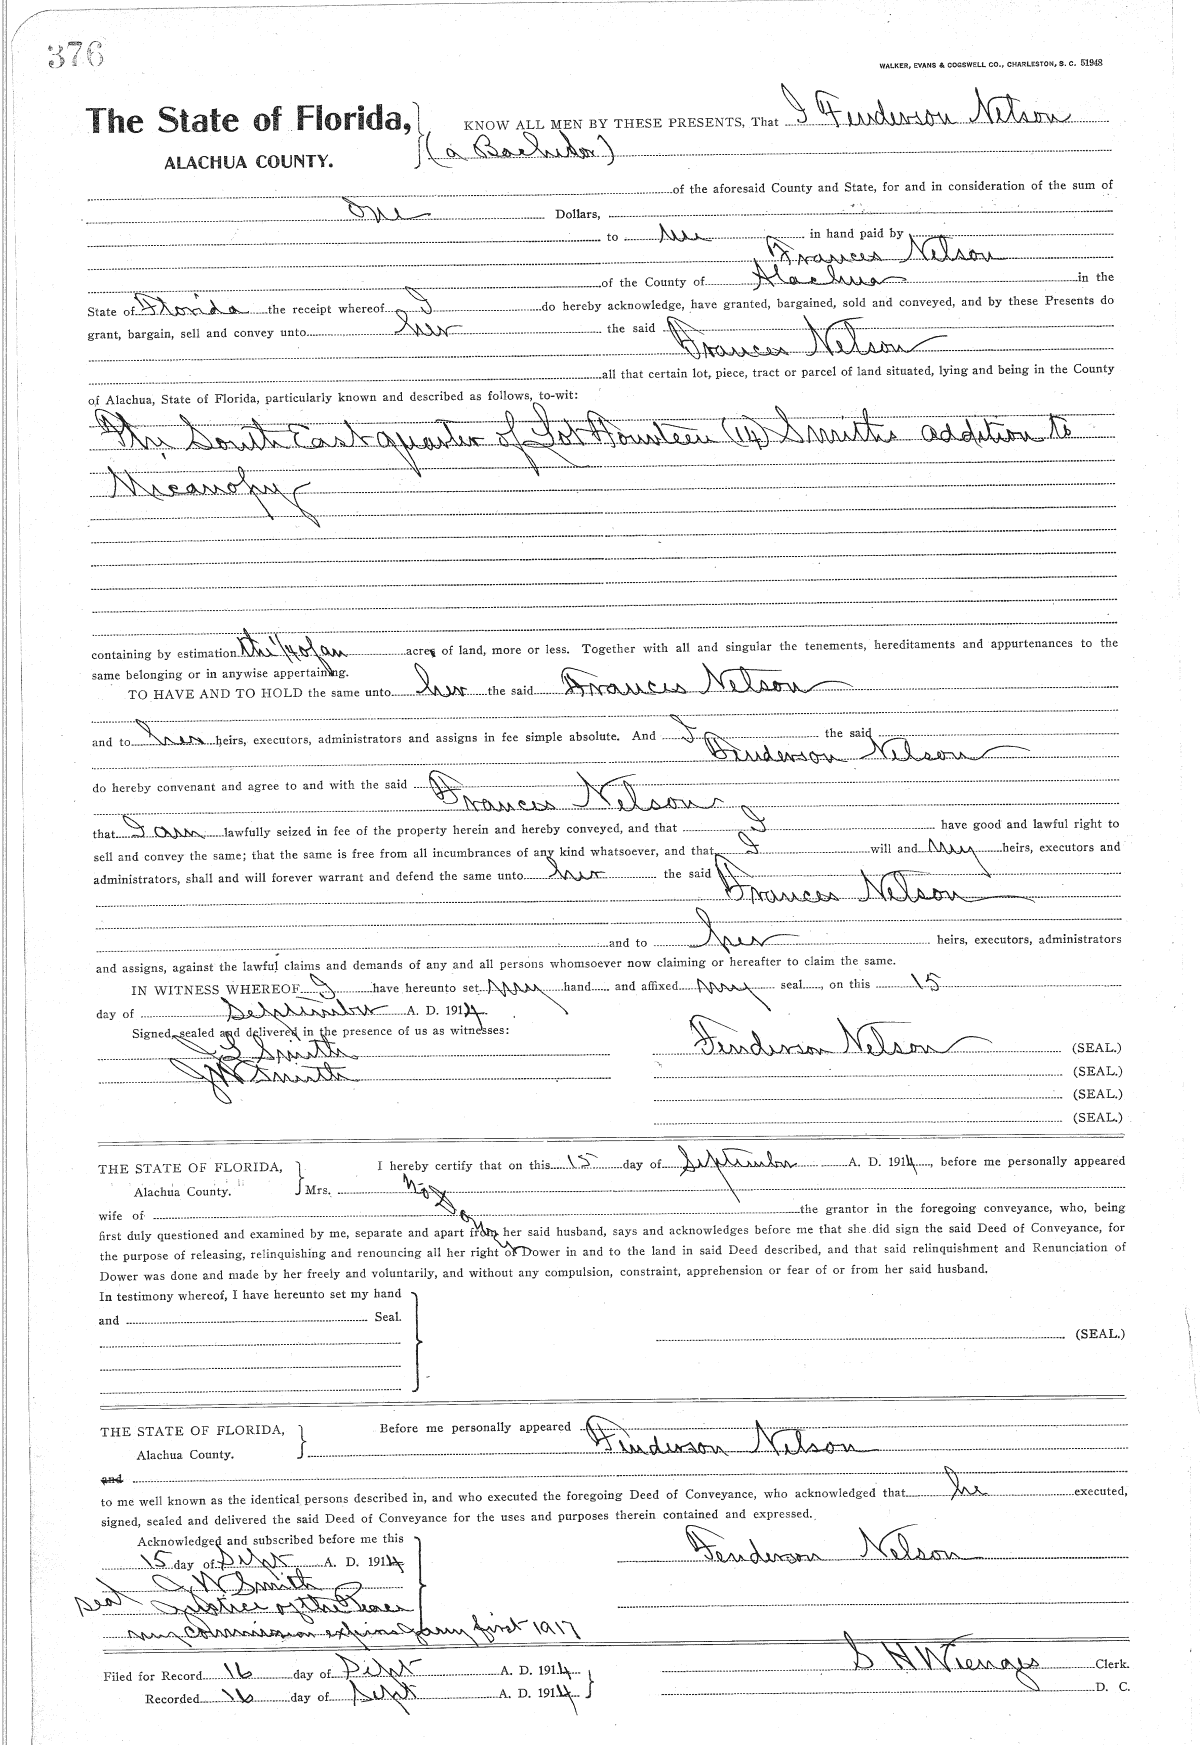 376
WALKER, EVANS & COGSWELL CO., CHARLESTON, S. C. 51948
The State of Florida, KNOW ALL MEN BY THESE PRESENTS, That I Fenderson Nelson
ALACHUA COUNTY. (a Bachelor)
of the aforesaid County and State, for and in consideration of the sum of
One Dollars,
to me in hand paid by
Frances Nelson
of the County of Alachua in the
State of Florida the receipt whereof I do hereby acknowledge, have granted, bargained, sold and conveyed, and by these Presents do
grant, bargain, sell and convey unto her the said
Frances Nelson
all that certain lot, piece, tract or parcel of land situated, lying and being in the County
of Alachua, State of Florida, particularly known and described as follows, to-wit:
The South East quarter of Lot Fourteen (14) Smiths addition to
Micanopy
containing by estimation the 1/4 of an acre of land, more or less. Together with all and singular the tenements, hereditaments and appurtenances to the
same belonging or in anywise appertaining.
TO HAVE AND TO HOLD the same unto her the said Frances Nelson
and to her heirs, executors, administrators and assigns in fee simple absolute. And I the said
Fenderson Nelson
do hereby convenant and agree to and with the said
Frances Nelson
that I am lawfully seized in fee of the property herein and hereby conveyed, and that I have good and lawful right to
sell and convey the same; that the same is free from all incumbrances of any kind whatsoever, and that I will and my heirs, executors and
administrators, shall and will forever warrant and defend the same unto her the said
Frances Nelson
and to her heirs, executors, administrators
and assigns, against the lawful claims and demands of any and all persons whomsoever now claiming or hereafter to claim the same.
IN WITNESS WHEREOF I have hereunto set my hand and affixed my seal, on this 15
day of September A. D. 1914
Signed, sealed and delivered in the presence of us as witnesses:
Smith Fenderson Nelson (SEAL.)
J W Smith (SEAL.)
(SEAL.)
(SEAL.)
THE STATE OF FLORIDA, I hereby certify that on this 15 day of September A. D. 1914, before me personally appeared
Alachua County. Mrs. No Dow
wife of the grantor in the foregoing conveyance, who, being
first duly questioned and examined by me, separate and apart from her said husband, says and acknowledges before me that she did sign the said Deed of Conveyance, for
the purpose of releasing, relinquishing and renouncing all her right of Dower in and to the land in said Deed described, and that said relinquishment and Renunciation of
Dower was done and made by her freely and voluntarily, and without any compulsion, constraint, apprehension or fear of or from her said husband.
In testimony whereof, I have hereunto set my hand
and Seal.
(SEAL.)
THE STATE OF FLORIDA, Before me personally appeared
Alachua County. Fenderson Nelson
and
to me well known as the identical persons described in, and who executed the foregoing Deed of Conveyance, who acknowledged that he executed,
signed, sealed and delivered the said Deed of Conveyance for the uses and purposes therein contained and expressed.
Acknowledged and subscribed before me this
15 day of Sept A. D. 1914 Fenderson Nelson
J W Smith
Seal Justice of the Peace
my commission expires Jany first 1917
Filed for Record 16 day of Sept A. D. 1914 S H Wienges Clerk.
Recorded 16 day of Sept A. D. 1914 D. C.